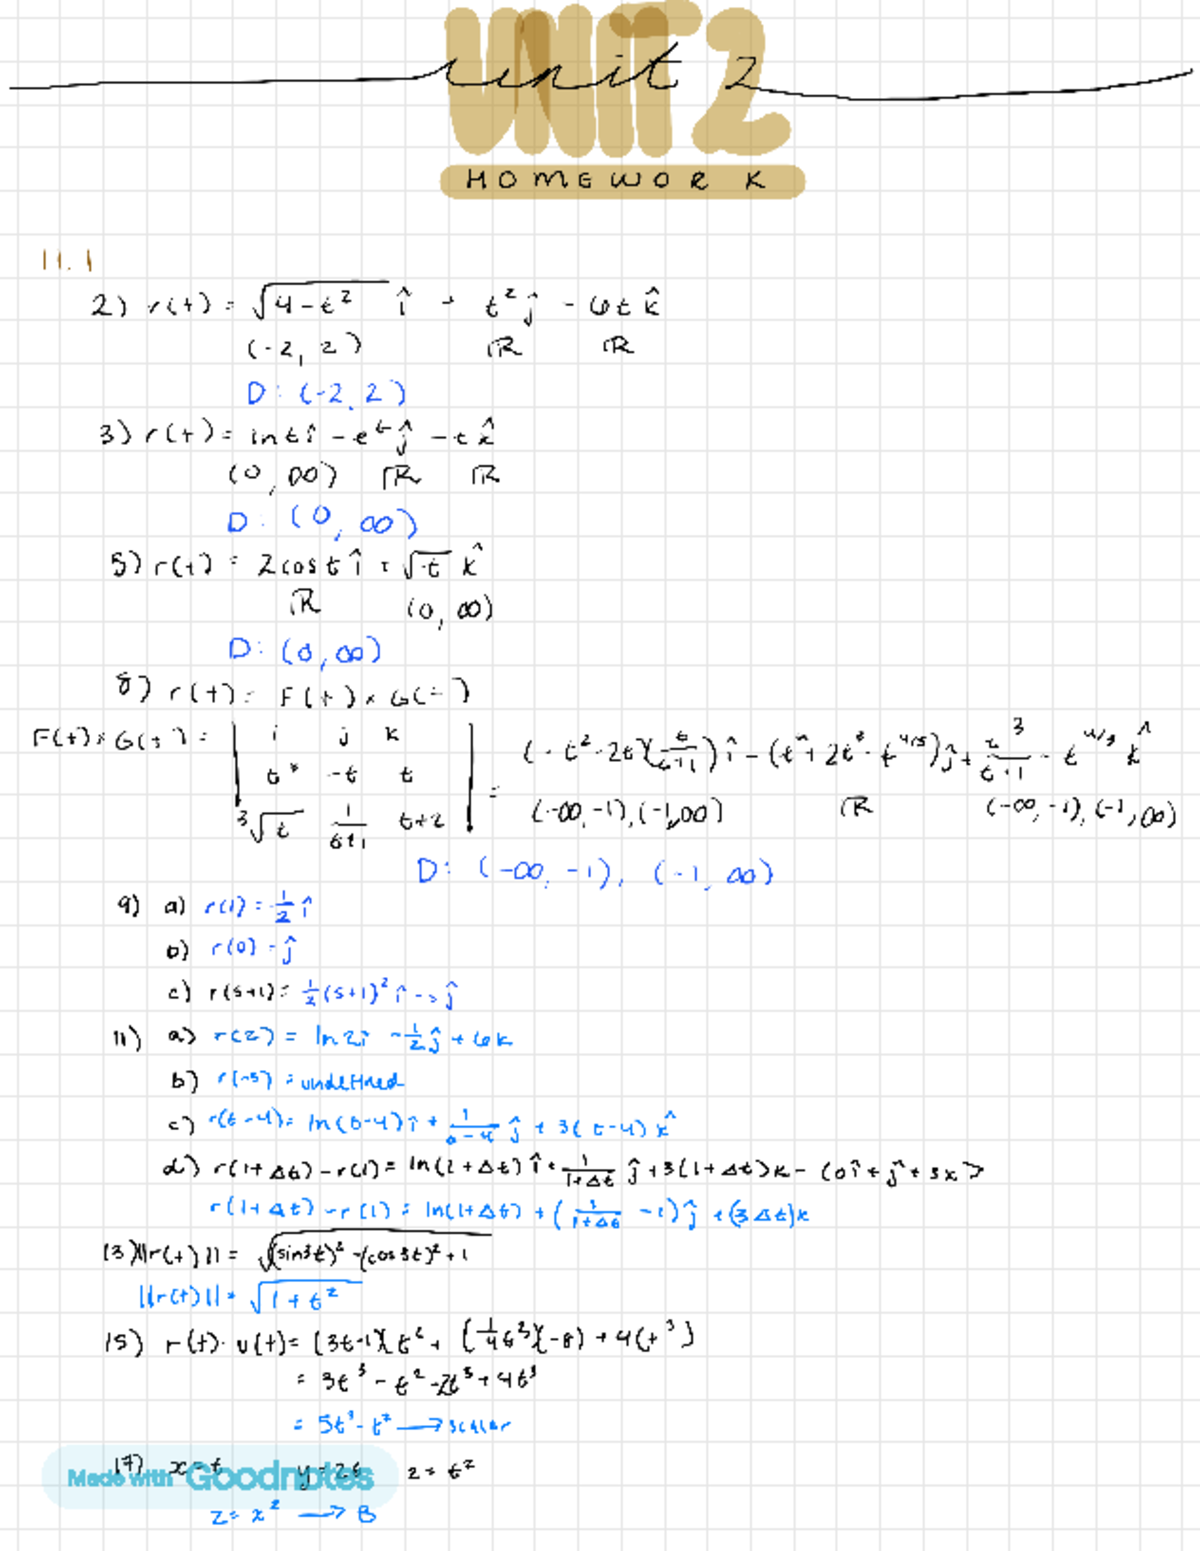 UNIT 2
unit 2
HOMEWORK
11.1
2) r(t) = √4-t² î + t² ĵ - 6t k̂
(-2, 2) ℝ ℝ
D: (-2, 2)
3) r(t) = ln t î - e^t ĵ - t k̂
(0, ∞) ℝ ℝ
D: (0, ∞)
5) r(t) = 2cos t î + √t k̂
ℝ (0, ∞)
D: (0, ∞)
8) r(t) = F(t) × G(t)
F(t) × G(t) = | i j k
-t t
³√t 1/(t+1) t+2 | =
(-∞, -1), (-1, ∞) ℝ (-∞, -1), (-1, ∞)
D: (-∞, -1), (-1, ∞)
9) a) r(1) = 1/2 î
b) r(0) = ĵ
c) r(s+1) = 1/2 (s+1)² î - s ĵ
11) a) r(2) = ln 2 î - 1/2 ĵ + 6k
b) r(-3) = undefined
c) r(t-4) = ln(t-4) î + 1/(t-4) ĵ + 3(t-4) k̂
d) r(1+Δt) - r(1) = ln(1+Δt) î + 1/(1+Δt) ĵ + 3(1+Δt)k - (0î + ĵ + 3k)
r(1+Δt) - r(1) = ln(1+Δt) + (1/(1+Δt) - 1) ĵ + (3Δt)k
13) ||r(t)|| = √(sin3t)² -(cos3t)² + 1
||r(t)|| = √1+t²
15) r(t) · u(t) = (3t-1)(t² + (1/4 t³)(-8) + 4(t³)
= 3t³ - t² - 2t³ + 4t³
= 5t³ - t² → scalar
17) x=t y=2t z=t²
Made with Goodnotes
z = x² → B